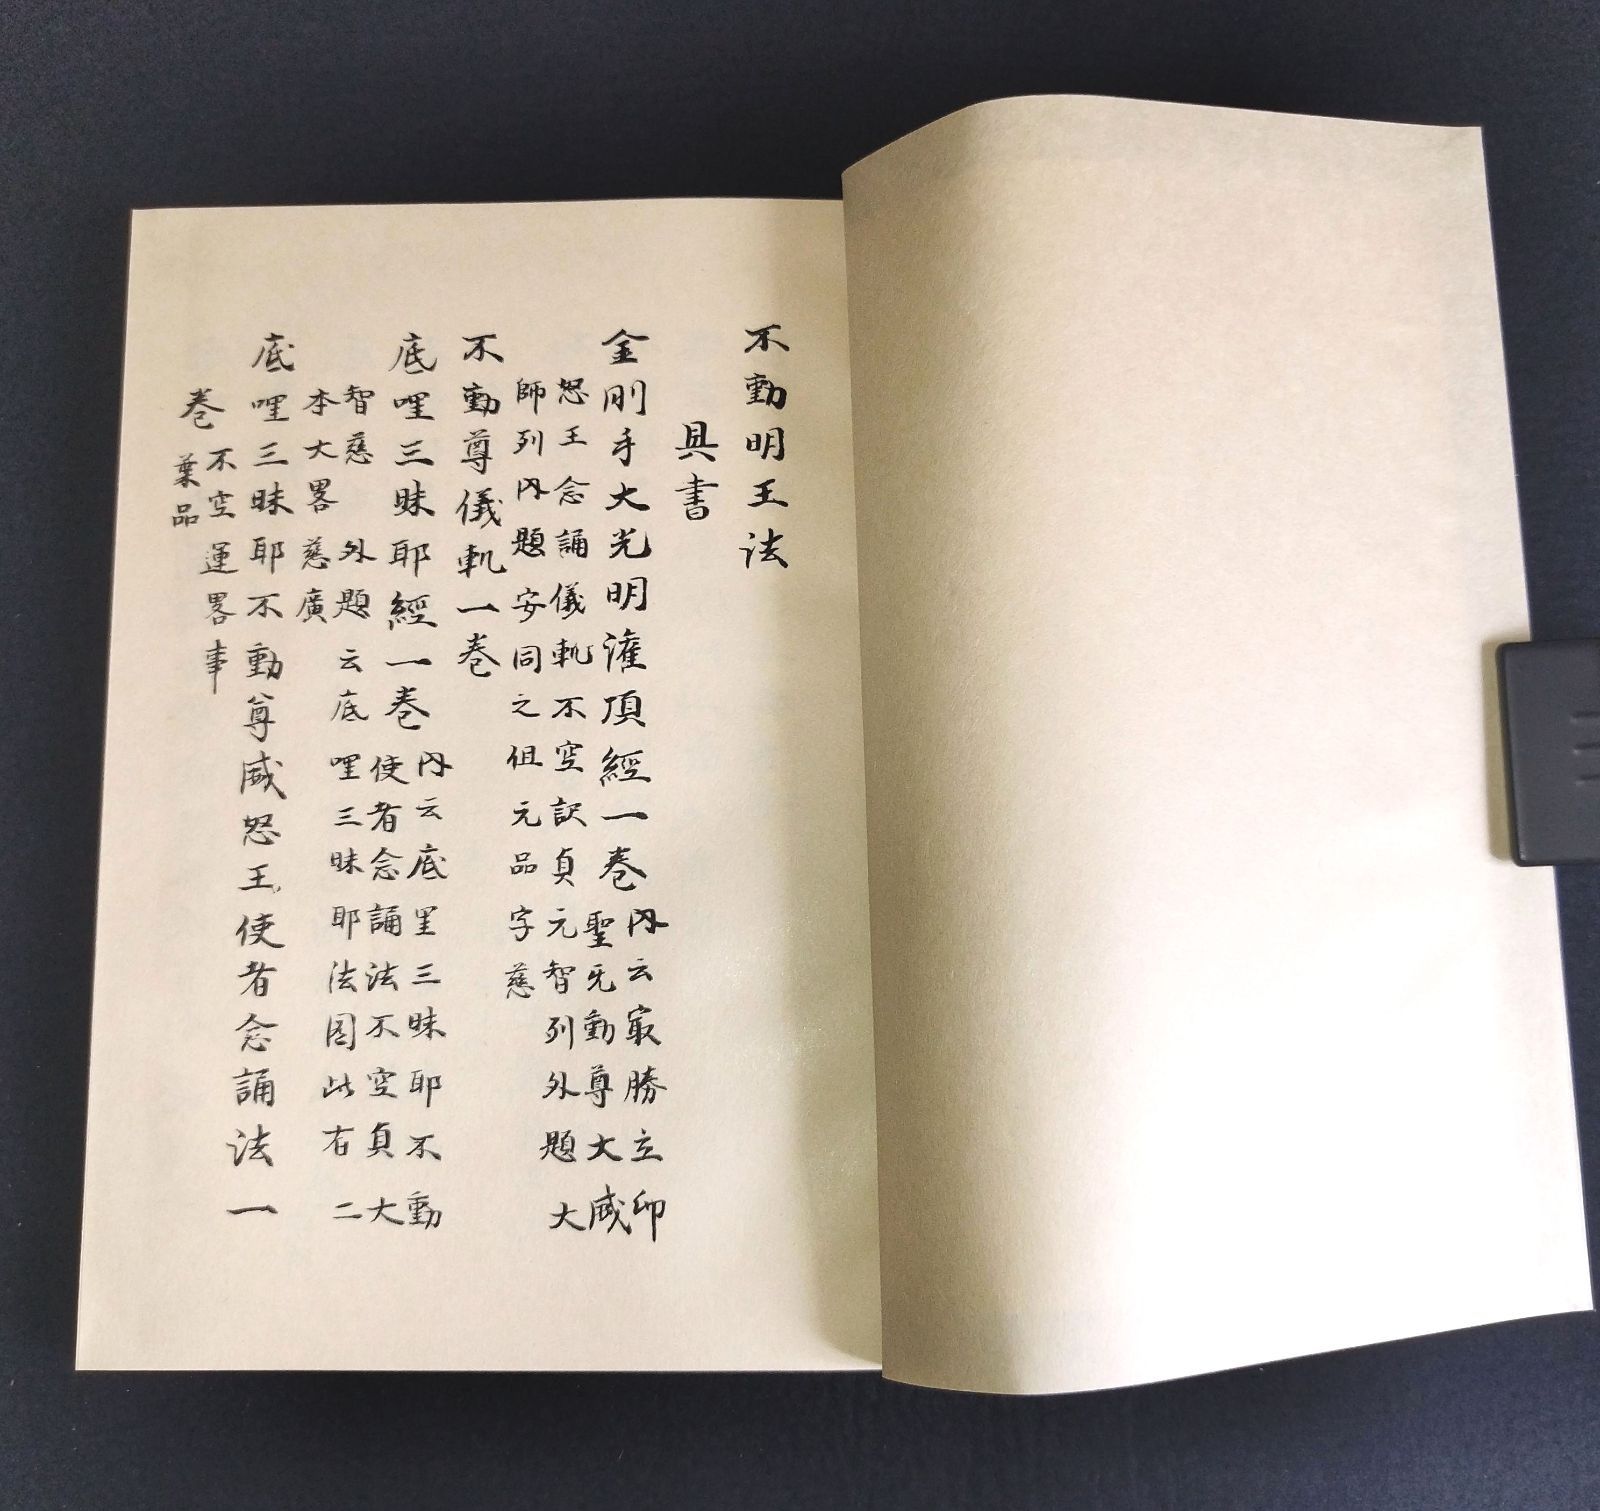 不動明王法
具書
金剛手大光明灌頂經一巻
内云寂勝立印
聖无動尊大威
怒王念誦儀軌不空訳貞元智列外題大
師列内題安同之但元品字慈
不動尊儀軌一巻
底哩三昧耶經一巻
内云底里三昧耶不動
使者念誦法不空貞大
智慈 外題云底哩三昧耶法因此右二
本大畧慈廣
底哩三昧耶不動尊威怒王使者念誦法一
巻
不空運畧事
葉品